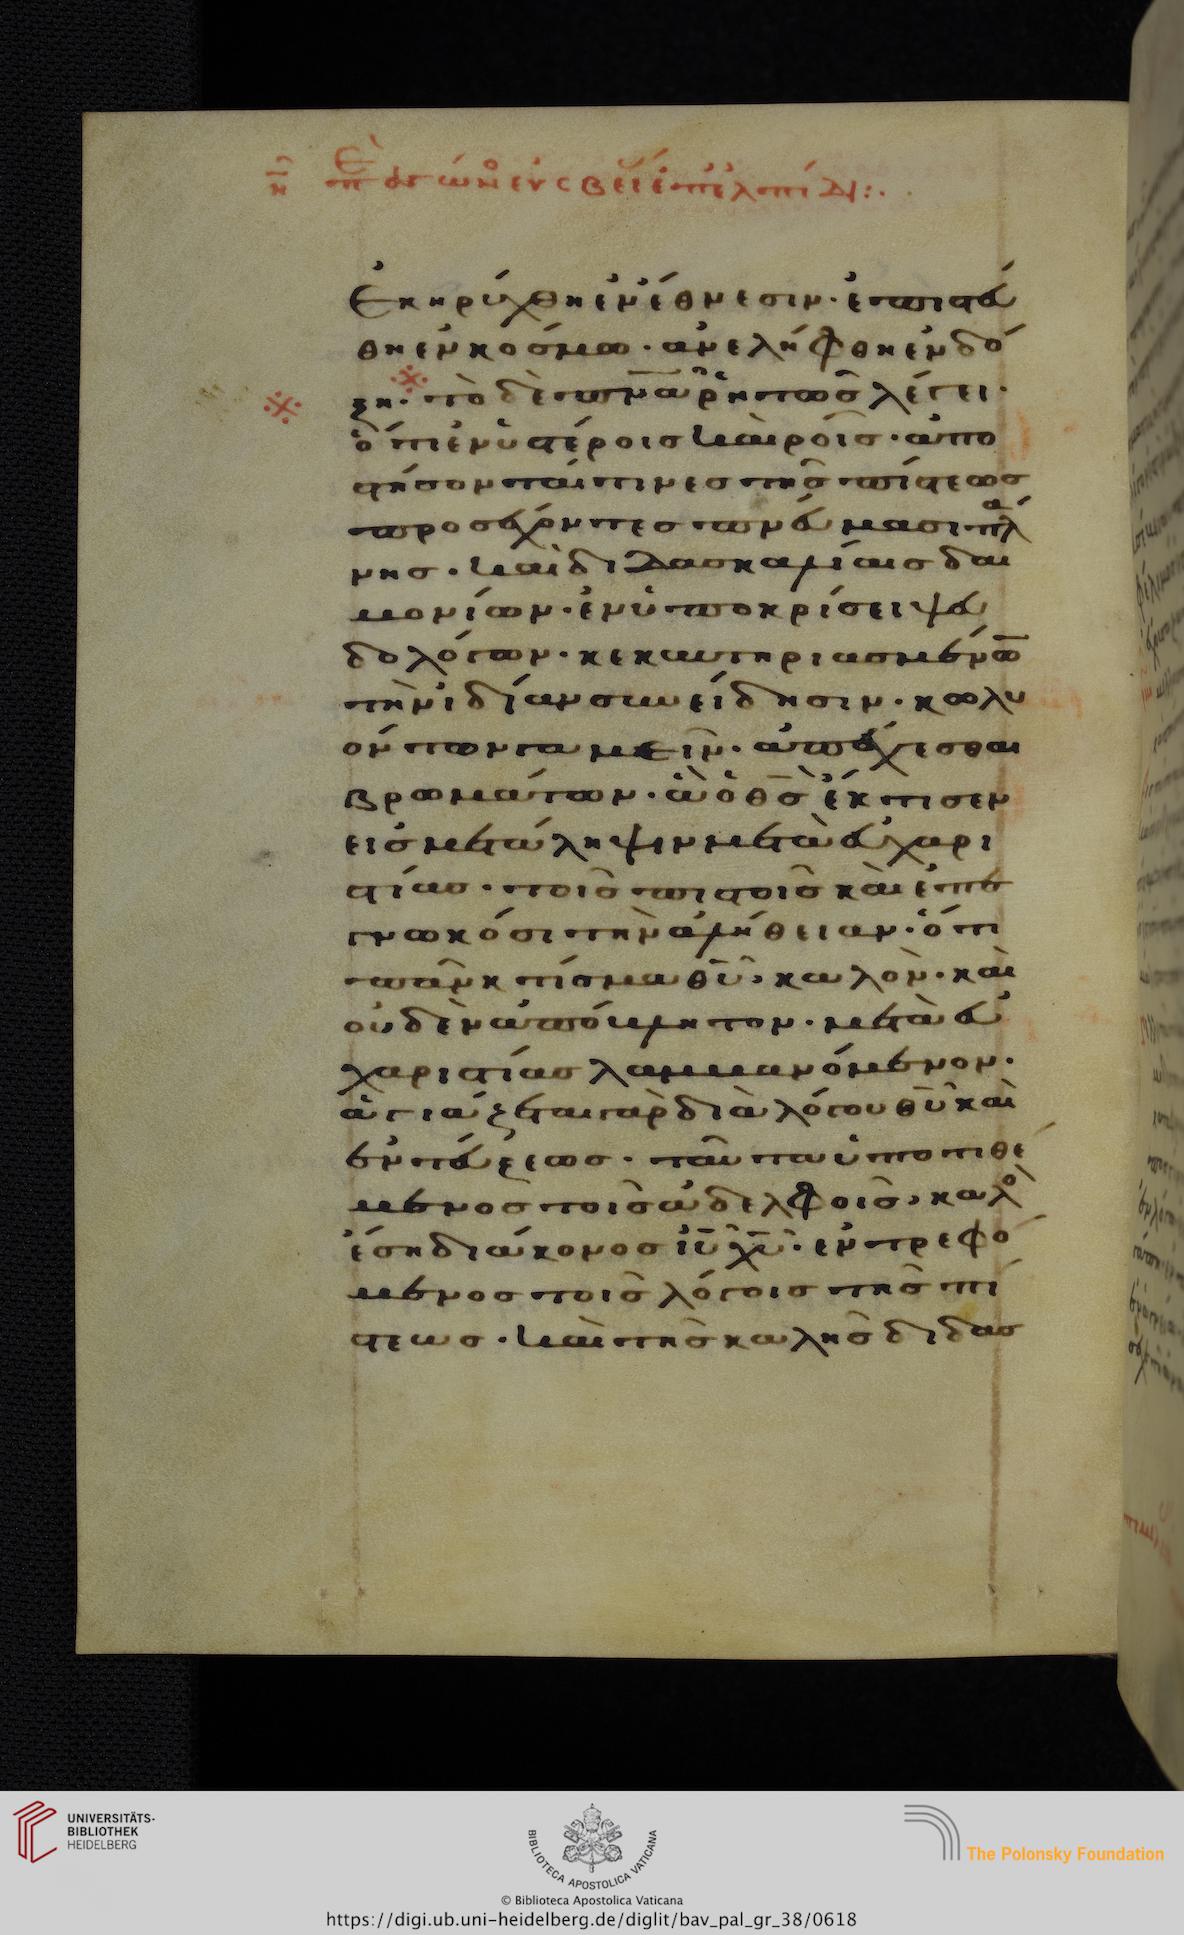 ἐκηρύχθη ἐν ἔθνεσιν· ἐπιστεύ
θη ἐν κόσμω· ἀνελήφθη ἐν δό
ξη· τὸ δὲ πνα ῥητῶς λέγει·
ὅτι ἐν ὑστέροις καιροῖς· ἀπο
στήσονταί τινες τῆς πίστεως
προσέχοντες πνεύμασι πλά
νης· καὶ διδασκαλίαις δαι
μονίων· ἐν ὑποκρίσει ψευ
δολόγων· κεκαυτηριασμένων
τὴν ἰδίαν συνείδησιν· κωλυ
όντων γαμεῖν· ἀπέχεσθαι
βρωμάτων· ἃ ὁ θς ἔκτισεν
εἰς μετάληψιν μετὰ εὐχαρι
στίας· τοῖς πιστοῖς καὶ ἐπε
γνωκόσι τὴν ἀλήθειαν· ὅτι
πᾶν κτίσμα θυ, καλὸν· καὶ
οὐδὲν ἀπόβλητον· μετὰ εὐ
χαριστίας λαμβανόμενον·
ἁγιάζεται γὰρ διὰ λόγου θυ καὶ
ἐντεύξεως· ταῦτα ὑποτιθέ
μενος τοῖς ἀδελφοῖς, καλὸς
ἔση διάκονος ιυ χυ· ἐντρεφό
μενος τοῖς λόγοις τῆς πί
στεως· καὶ τῆς καλῆς διδασ
UNIVERSITÄTS-
BIBLIOTHEK
HEIDELBERG
BIBLIOTECA APOSTOLICA VATICANA
© Biblioteca Apostolica Vaticana
The Polonsky Foundation
https://digi.ub.uni-heidelberg.de/diglit/bav_pal_gr_38/0618